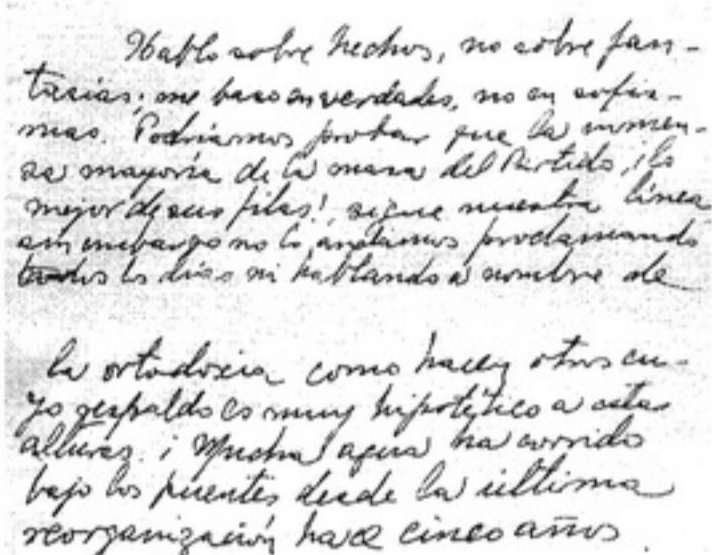 Hablo sobre hechos, no sobre fan-
tasías; me baso en verdades, no en sofis-
mas. Podríamos probar que la inmen-
sa mayoría de la masa del Partido, ¡lo
mejor de sus filas!, sigue nuestra línea
sin embargo no lo andamos proclamando
todos los días ni hablando a nombre de
la ortodoxia como hacen otros cu-
yo respaldo es muy hipotético a estas
alturas. ¡Mucha agua ha corrido
bajo los puentes desde la última
reorganización hace cinco años